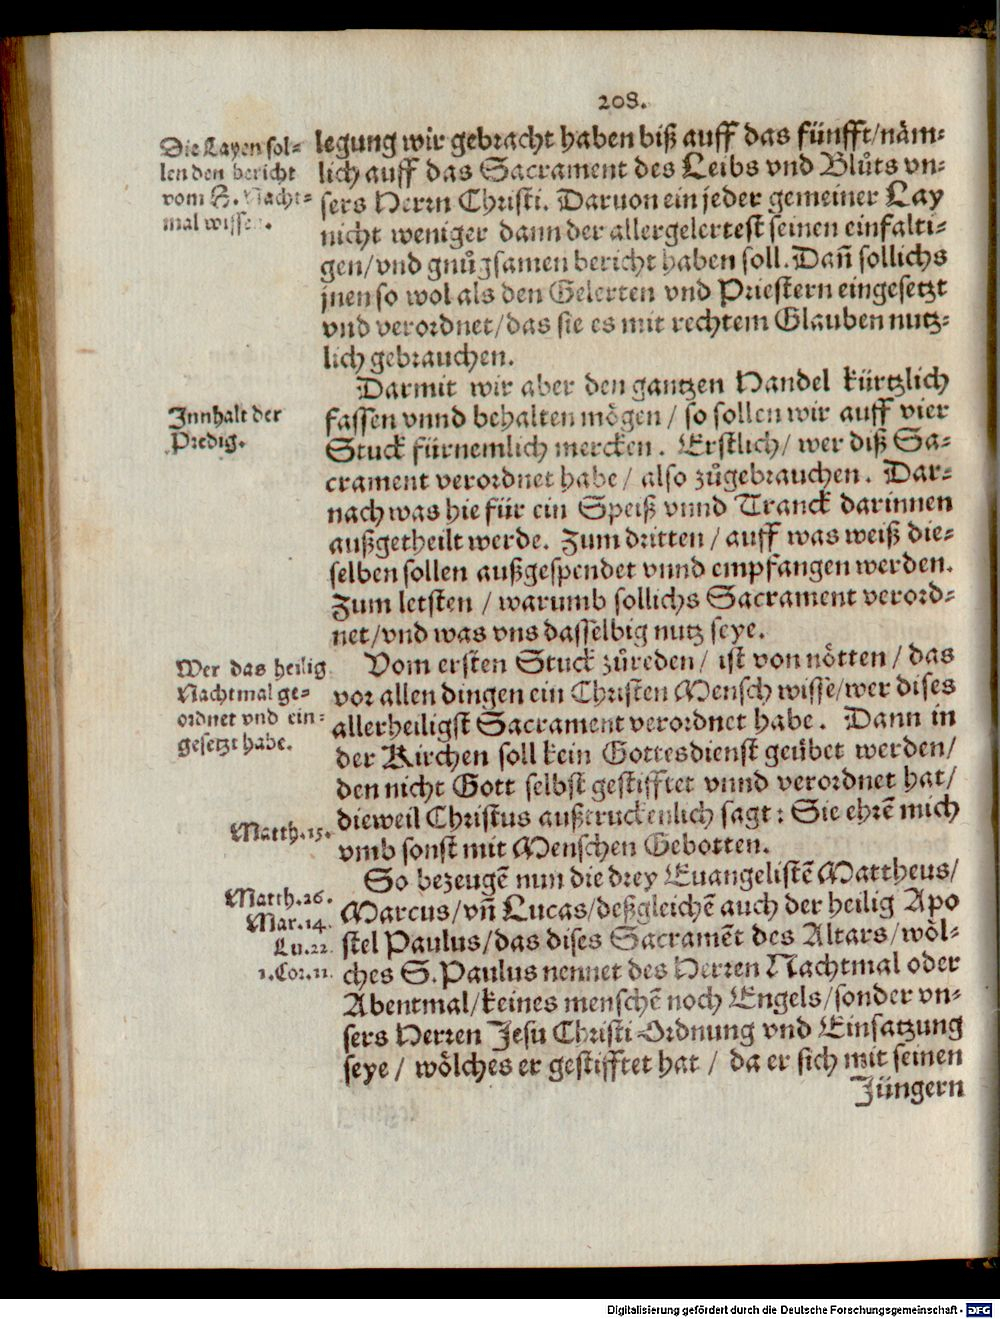 208.
Die Layen sol-
len den bericht
vom H. Nacht-
mal wissen.
legung wir gebracht haben biß auff das fünfft/näm-
lich auff das Sacrament des Leibs vnd Blůts vn-
sers Herrn Christi. Daruon ein jeder gemeiner Lay
nicht weniger dann der allergelertest seinen einfalti-
gen/vnd gnůgsamen bericht haben soll. Dañ sollichs
jnen so wol als den Gelerten vnd Priestern eingesetzt
vnd verordnet/das sie es mit rechtem Glauben nutz-
lich gebrauchen.
Innhalt der
Predig.
Darmit wir aber den gantzen Handel kürtzlich
fassen vnnd behalten mögen / so sollen wir auff vier
Stuck fürnemlich mercken. Erstlich/ wer diß Sa-
crament verordnet habe / also zůgebrauchen. Dar-
nach was hie für ein Speiß vnnd Tranck darinnen
außgetheilt werde. Zum dritten / auff was weiß die-
selben sollen außgespendet vnnd empfangen werden.
Zum letsten / warumb sollichs Sacrament verord-
net/vnd was vns dasselbig nutz seye.
Wer das heilig
Nachtmal ge-
ordnet vnd ein-
gesetzt habe.
Vom ersten Stuck zůreden/ ist von nötten / das
vor allen dingen ein Christen Mensch wisse/wer dises
allerheiligst Sacrament verordnet habe. Dann in
der Kirchen soll kein Gottesdienst geübet werden/
den nicht Gott selbst gestifftet vnnd verordnet hat/
dieweil Christus außtruckenlich sagt: Sie ehrẽ mich
vmb sonst mit Menschen Gebotten.
Matth.15.
Matth.26.
Mar.14.
Lu.22.
1.Cor.11.
So bezeugẽ nun die drey Euangelistẽ Mattheus/
Marcus/vñ Lucas/deßgleichẽ auch der heilig Apo
stel Paulus/das dises Sacramẽt des Altars/wöl-
ches S. Paulus nennet des Herren Nachtmal oder
Abentmal/keines menschẽ noch Engels/sonder vn-
sers Herren Jesu Christi Ordnung vnd Einsatzung
seye / wölches er gestifftet hat / da er sich mit seinen
Jüngern
Digitalisierung gefördert durch die Deutsche Forschungsgemeinschaft - DFG